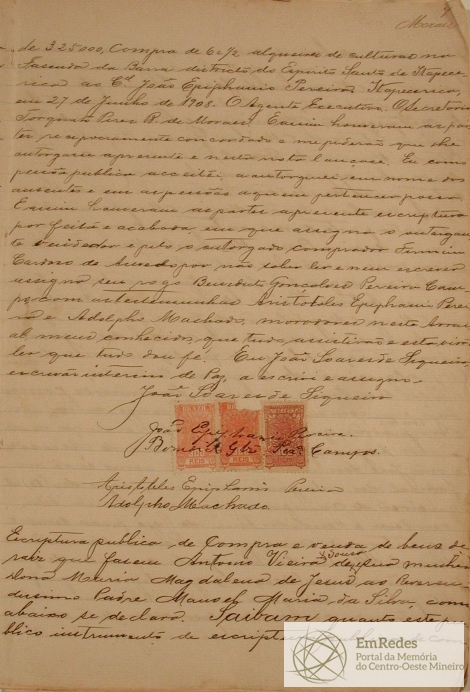 Moraes
de 325000, Compra de 6 1/2 alqueires de culturas na
Fazenda da Barra districto do Espirito Santo de Itapece-
rica ao Cel João Epiphanio Pereira. Itapecerica,
em 27 de Junho de 1908. O Agente Executivo, O Secretario
Torquato Perez R. de Moraes. E assim houveram as par-
tes reciprocamente concordado e me pederão que lhe
outorgasse a presente e nesta nota lançase. Eu como
pessôa publica acceitei, a outorguei em nome dos
auscentes e em as pessôas a quem pertencer possa
E assim houveram as partes a presente escriptura
por feita e acabada, em que assigna o outorgan-
te vendedor e pelo o outorgado comprador Fermino
Cardoso de Azevedo por não saber ler e nem escrever
assigna seu rogo Benedicto Gonçalves Pereira Cam-
pos, com as testemunhas Aristoteles Epiphanio Perei-
ra e Adolpho Machado, moradores neste Arrai-
al meus conhecidos, que tudo assistirão e esta virão
ler que tudo dou fé. Eu João Soares de Siqueira,
escrivão interino de Paz, a escrivi e assigno.
João Soares de Siqueira
João Epiphanio Pereira.
Campos.
Aristoteles Epiphanio Pereira
Adolpho Machado.
Escriptura publica de Compra e venda de bens de
raiz que fazem Antonio Vieira de Souza e sua mulher
Dona Maria Magdalena de Jesus ao Reveren-
dissimo Padre Manoel Maria da Silva, como
abaixo se declara. Saibam quanto este pu-
blico instrumento de escriptura
EmRedes
Portal da Memória
do Centro-Oeste Mineiro